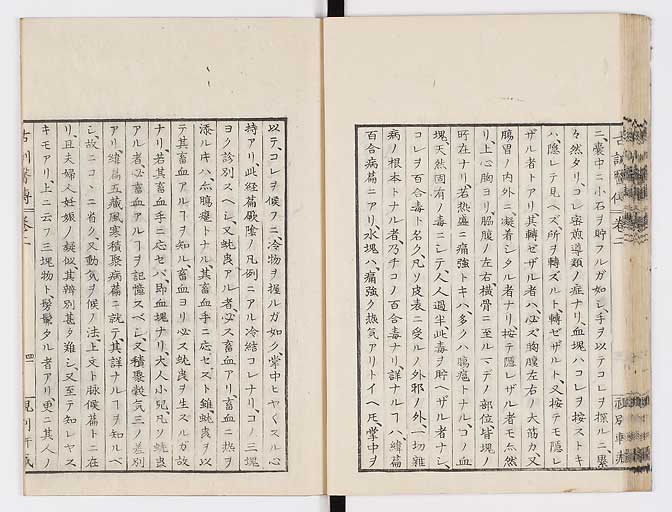 ニ、嚢中ニ小石ヲ貯フルガ如シ、手ヲ以テコレヲ探ルニ、累
々然タリ、コレ蜜煎導類ノ症ナリ、血塊ハコレヲ按ストキ
ハ、隠レテ見ヘズ、所ヲ轉ズルト、轉ゼザルト、又按テモ隠レ
ザル者トアリ、其轉ゼザル者ハ、必ズ胸腹左右ノ大筋カ、又
腸胃ノ内外ニ凝着シタル者ナリ、按テ隠レザル者モ亦然
リ、上心胸ヨリ、脇腹ノ左右、横骨ニ至ルマデノ部位、皆塊ノ
所在ナリ、若熱盛ニ痛強トキハ、多クハ腸癰トナル、コノ血
塊天然固有ノ毒ニシテ、人々過半此毒ヲ貯ヘザル者ナシ、
コレヲ百合毒ト名ク、凡ソ皮表ニ受ルノ外邪ノ外、一切雑
病ノ根本トナル者、乃チコノ百合毒ナリ、詳ナルヿハ、緯篇
百合病篇ニアリ、水塊ハ、痛強ク熱気アリトイヘ𪜈、掌中ヲ
以テ、コレヲ候フニ、冷物ヲ握ルガ如ク、掌中ヒヤ〱スル心
持アリ、此経篇厥陰ノ凡例ニアル冷結コレナリ、コノ三塊
ヨク診別スヘシ、又蚘蟲アル者、必ス畜血アリ、畜血ニ熱ヲ
添ルキハ亦腸癰トナル、其畜血手ニ応セズト雖、蚘蟲ヲ以
テ其畜血アルヿヲ知ル、畜血ヨリ必ス蚘蟲ヲ生スルガ故
ナリ、若其畜血手ニ応セバ、即血塊ナリ、大人小児、凡ソ蚘蟲
アル者、必畜血アルヿヲ記憶スベシ、又積聚穀気三ノ差別
アリ、緯篇五藏風寒積聚病篇ニ就テ、其詳ナルヿヲ知ルベ
シ、故ニココニ省ク、又動気ヲ候ノ法、上文ト脉候篇トニ在
リ、且夫婦人妊娠ノ疑似其辨別甚タ難シ、又至テ知レヤス
キモアリ、上ニ云フ三塊物ト、髣髴タル者アリ、更ニ其人ノ
四